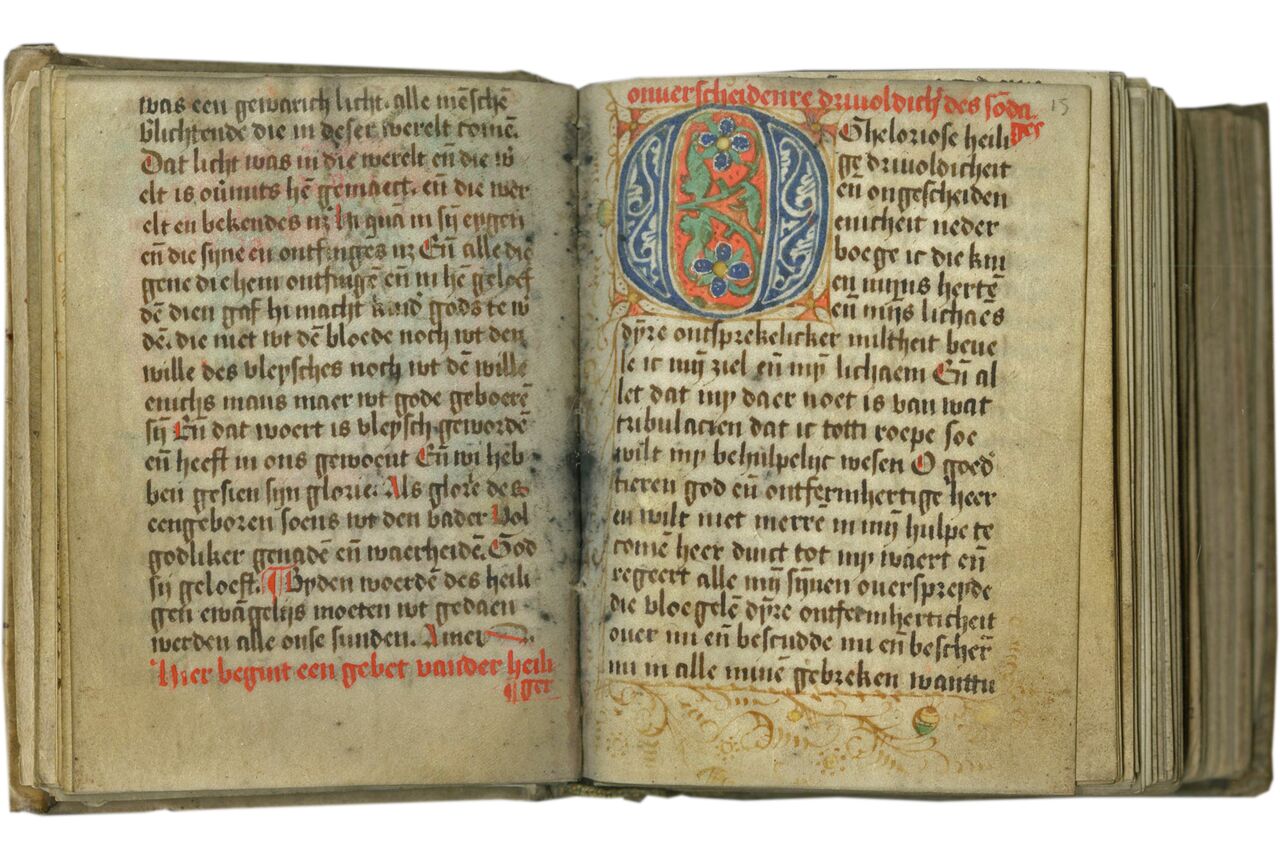 was een gewarich licht. alle mēschē
v̓lichtende die in deser werelt comē.
Dat licht was in die werelt en̄ die w̓
elt is ou̓mits hē gemaect. en̄ die wer
elt en bekendes n̄z hi quā in sij eygen
en̄ die sijne en ontfinges n̄z En̄ alle die
gene die hem ontfingē en̄ in hē geloef
dē dien gaf hi macht kind̓ gods te w̓
dē. die niet wt dē bloede noch wt den
wille des vleysches noch wt dē wille
enichs mans maer wt gode geboerē
sij En̄ dat woert is vleysch gewordē
en̄ heeft in ons gewoent En̄ wi heb
ben gesien sijn glorie. Als glorie des
eengeboren soens wt den vader Vol
godliker genadē en̄ waerheidē. God
sij geloeft. ¶ Byden woerdē des heili
gen ewāgelijs moeten wt gedaen
werden alle onse sunden. Amen
Hier begint een gebet vander heili
¶ ger
onuerscheidenre driuoldich̓ des sōda
ges
15
O Gheloriose heili
ge driuoldicheit
en̄ ongescheiden
enicheit neder
boege ic die kni
en mijns hertē
en̄ mijs lichaēs
dijre ontsprekelicker miltheit beue
le ic mij ziel en̄ mij lichaem En̄ al
let dat mij daer noet is van wat
tribulacien dat ic totti roepe soe
wilt mij behulpelijc wesen O goed̓
tieren god en̄ ontfermhertige heer
en wilt niet merrē in mij hulpe te
comē heer dinct tot mij waert en̄
regeert alle mij sijnen ouerspreyde
die vloegelē dijre ontfermherticheit
ouer mi en̄ bescudde mi en̄ bescher̄
mi in alle minē gebreken wanttu